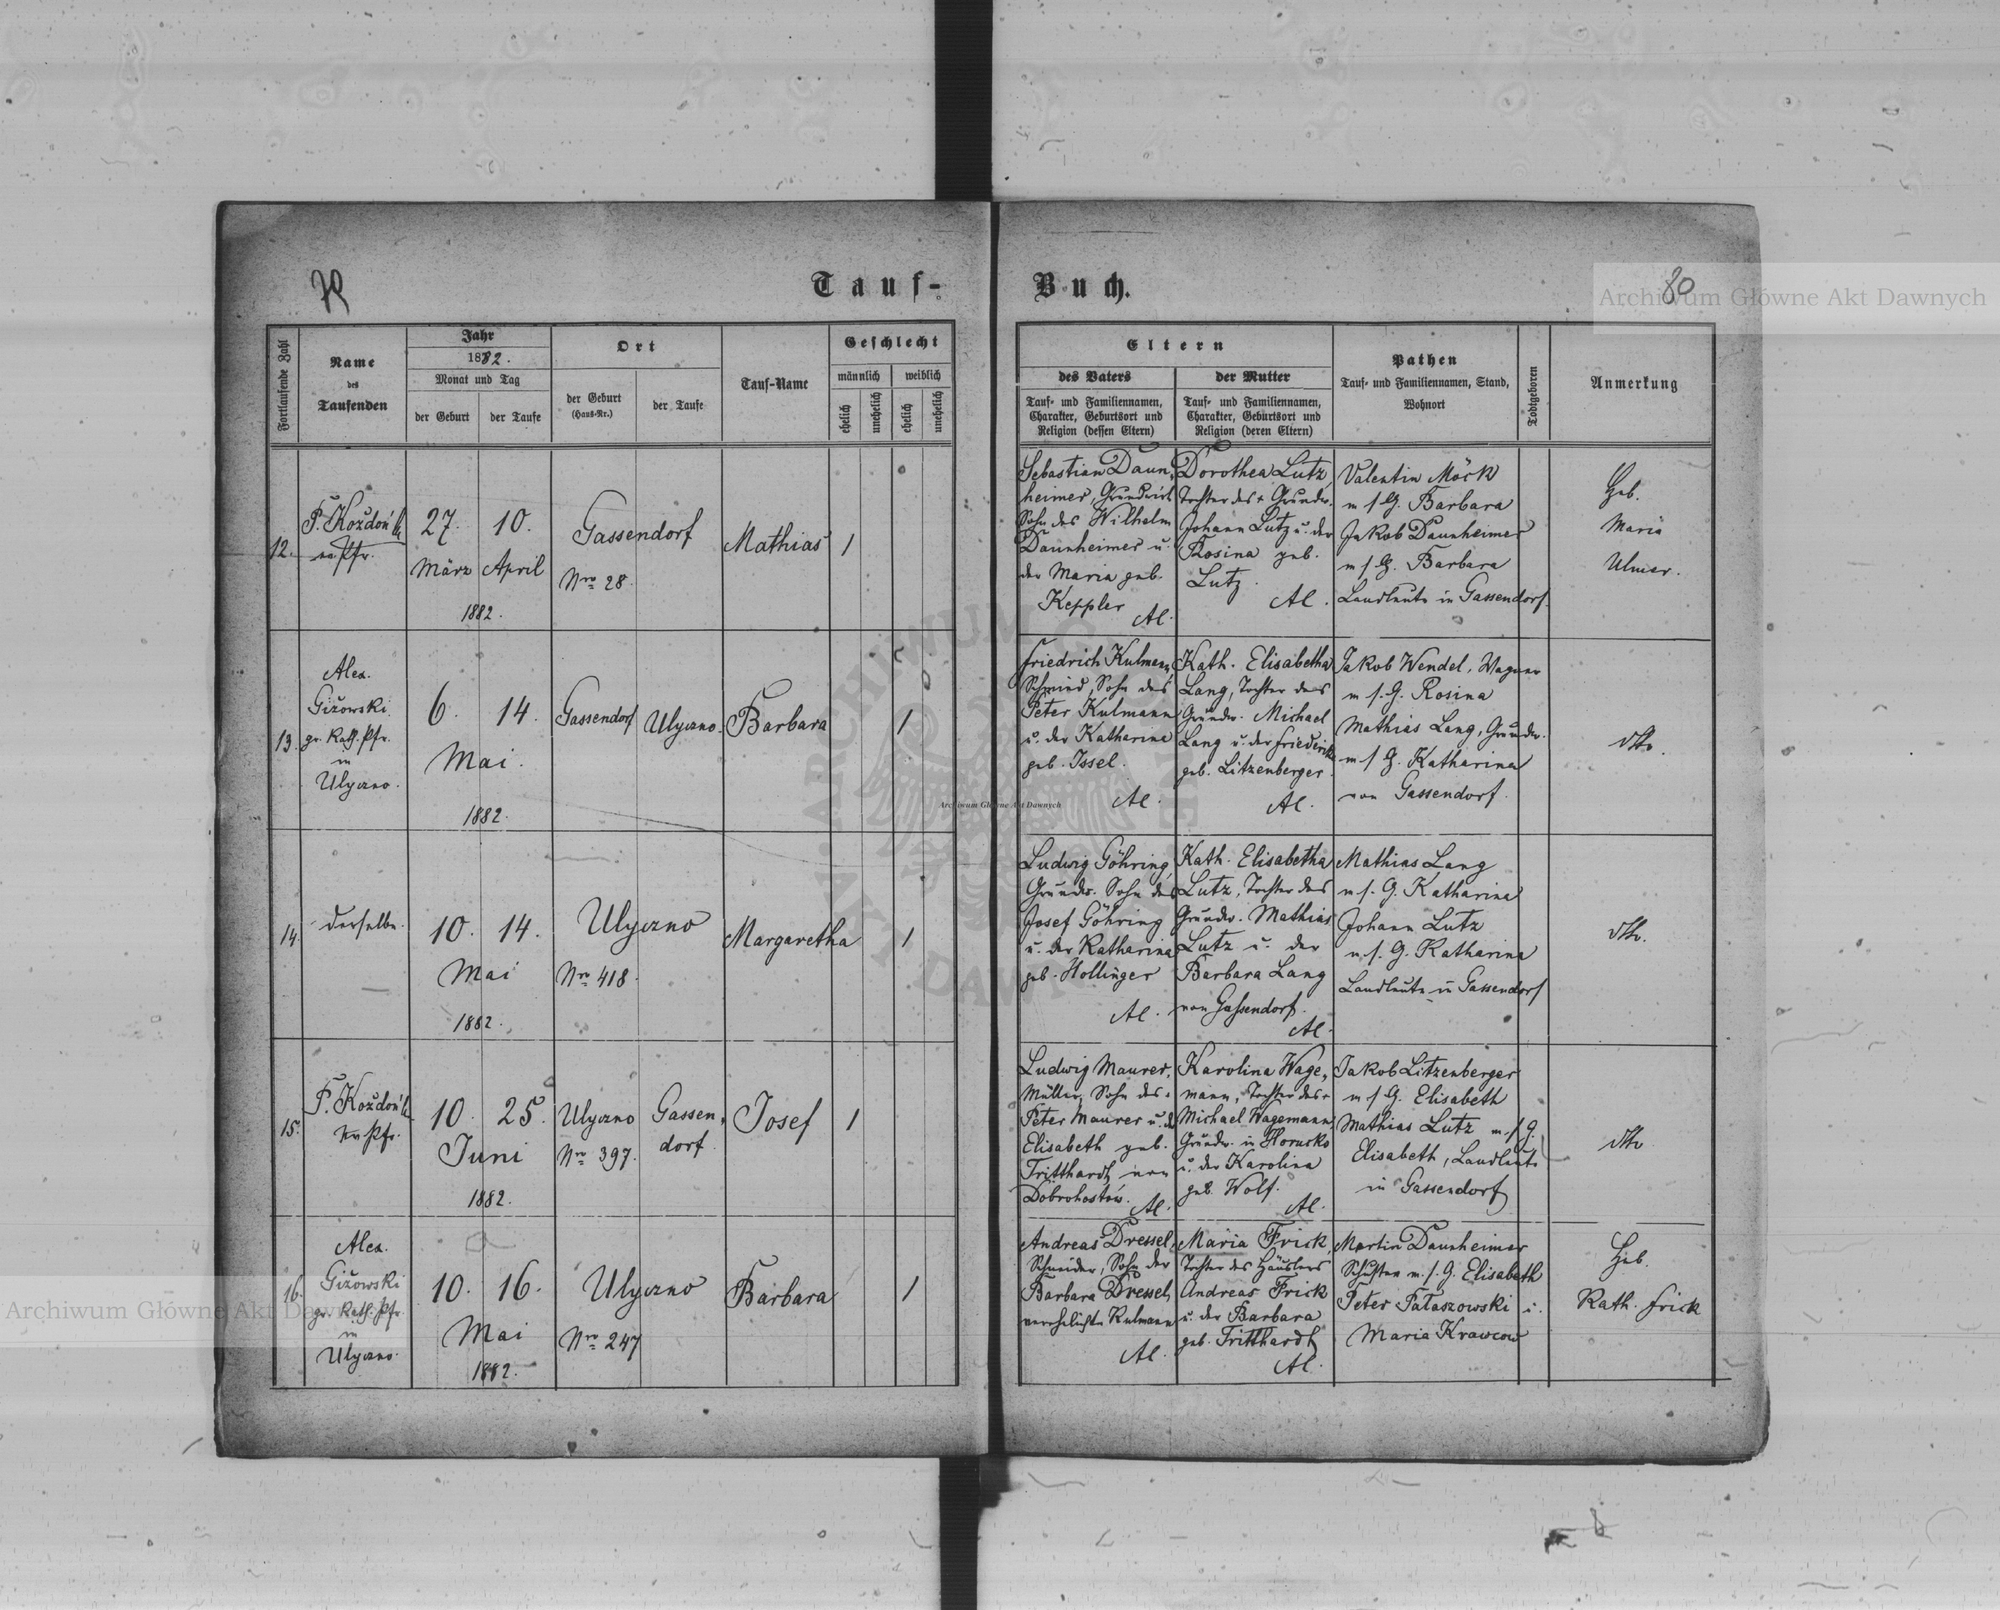 79
Tauf-
Buch.
80
Archiwum Główne Akt Dawnych
Fortlaufende Zahl
Name
des
Taufenden
Jahr
1882.
Monat und Tag
der Geburt
der Taufe
Ort
der Geburt
(Haus-Nr.)
der Taufe
Tauf-Name
Geschlecht
männlich
weiblich
ehelich
unehelich
ehelich
unehelich
Eltern
des Vaters
Tauf- und Familiennamen,
Charakter, Geburtsort und
Religion (dessen Eltern)
der Mutter
Tauf- und Familiennamen,
Charakter, Geburtsort und
Religion (deren Eltern)
Pathen
Tauf- und Familiennamen, Stand,
Wohnort
Todtgeboren
Anmerkung
12.
ev. Pfr.
27.
März
10.
April
1882.
Gassendorf
Nro 28.
Mathias
1
Sebastian Daun-
heimer, Grundwirt
Sohn des Wilhelm
Daunheimer u.
der Maria geb.
Keppler
AC.
Dorothea Lutz,
Tochter des + Grundw.
Johann Lutz u. der
Rosina geb.
Lutz.
AC.
Valentin Möck
m s/G. Barbara
Jakob Daunheimer
m s/G. Barbara
Landleute in Gassendorf.
Heb.
Maria
Ulmer.
13.
Alex.
Giżowski
gr. Kath. Pfr.
in
Ulyczno.
6.
14.
Mai.
1882.
Gassendorf
Ulyczno.
Barbara
1
Friedrich Kulmann,
Schmied, Sohn des
Peter Kulmann
u. der Katharina
geb. Issel.
AC.
Kath. Elisabetha
Lang, Tochter des
Grundw. Michael
Lang u. der Friederike
geb. Litzenberger.
AC.
Jakob Wendel, Wagner
m s. G. Rosina
Mathias Lang, Grundw.
m s/G. Katharina
von Gassendorf.
dtto.
14.
derselbe.
10.
14.
Mai
1882.
Ulyczno
Nro 418.
Margaretha
1
Ludwig Göhring,
Grundw. Sohn des
Josef Göhring
u. der Katharina
geb. Hollinger
AC.
Kath. Elisabetha
Lutz, Tochter des
Grundw. Mathias
Lutz u. der
Barbara Lang
von Gassendorf.
AC.
Mathias Lang
m s. G. Katharina
Johann Lutz
m s. G. Katharina
Landleute in Gassendorf
dtto.
15.
ev. Pfr.
10.
25.
Juni
1882.
Ulyczno
Nro 397.
Gassen-
dorf.
Josef
1
Ludwig Maurer,
Müller, Sohn des +
Peter Maurer u. der
Elisabeth geb.
Tritthardt von
Dobrohostów.
AC.
Karolina Wage-
mann, Tochter des +
Michael Wagemann
Grundw. in Horucko
u. der Karolina
geb. Wolf.
AC.
Jakob Litzenberger
m s/G. Elisabeth
Mathias Lutz m. s/G.
Elisabeth, Landleute
in Gassendorf
dtto
16.
Alex.
Giżowski
gr. Kath. Pfr.
in
Ulyczno.
10.
16.
Mai
1882.
Ulyczno
Nro 247
Barbara
1
Andreas Dressel,
Schneider, Sohn der
Barbara Dressel,
verehelichte Kulmann
AC.
Maria Frick,
Tochter des Häuslers
Andreas Frick
u. der Barbara
geb. Tritthardt
AC.
Martin Daunheimer
Schuster m. s. G. Elisabeth
Peter Pałaszowski u.
Maria Krawców
Heb.
Kath. Frick
Archiwum Główne Akt Dawnych
Archiwum Główne Akt Dawnych